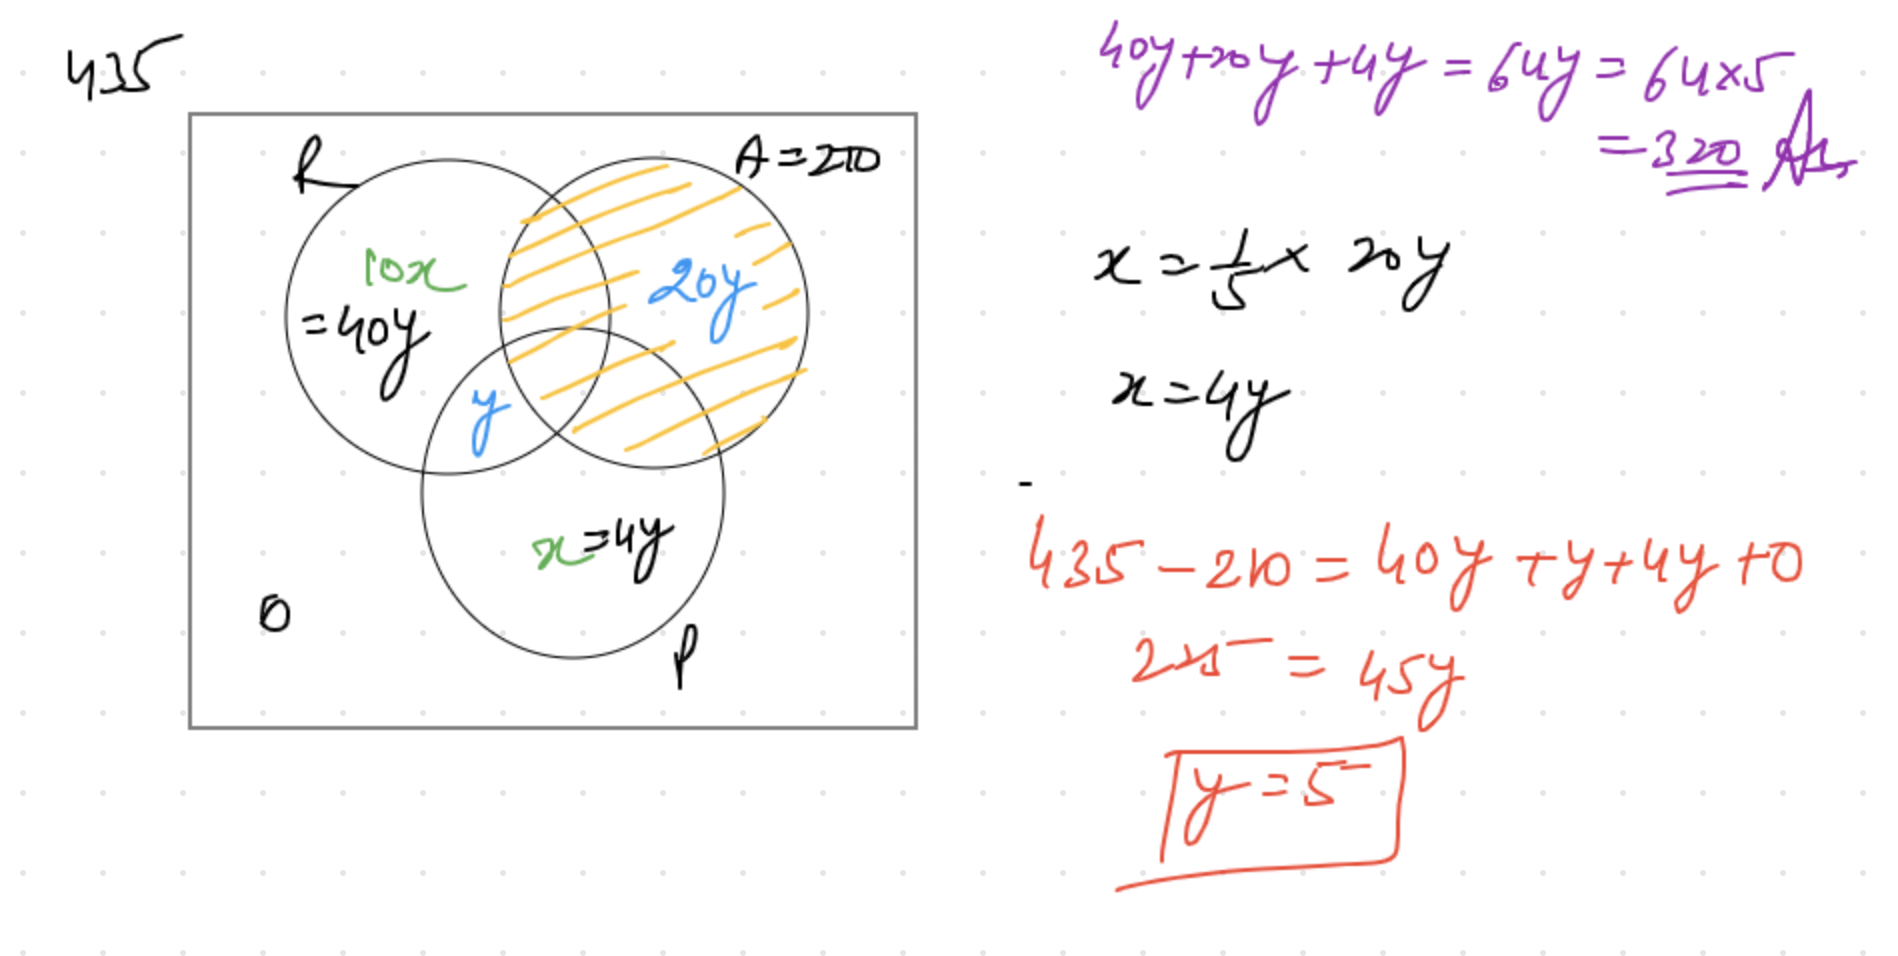 435
R
A = 210
10x
= 40y
20y
y
x = 4y
0
P
40y + 20y + 4y = 64y = 64 × 5
= 320 Ans
x = 1/5 × 20y
x = 4y
-
435 - 210 = 40y + y + 4y + 0
225 = 45y
y = 5